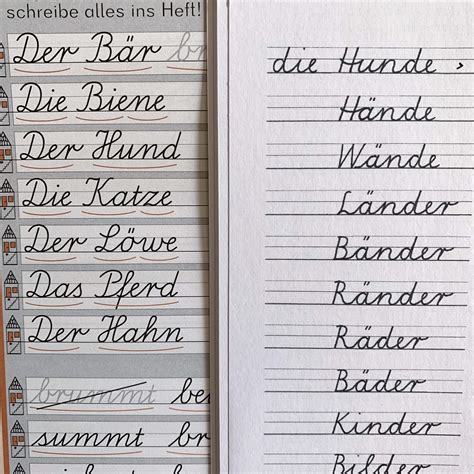 schreibe alles ins Heft!
Der Bär br
Die Biene
Der Hund
Die Katze
Der Löwe
Das Pferd
Der Hahn
brummt be
summt br
die Hunde,
Hände
Wände
Länder
Bänder
Ränder
Räder
Bäder
Kinder
Bilder